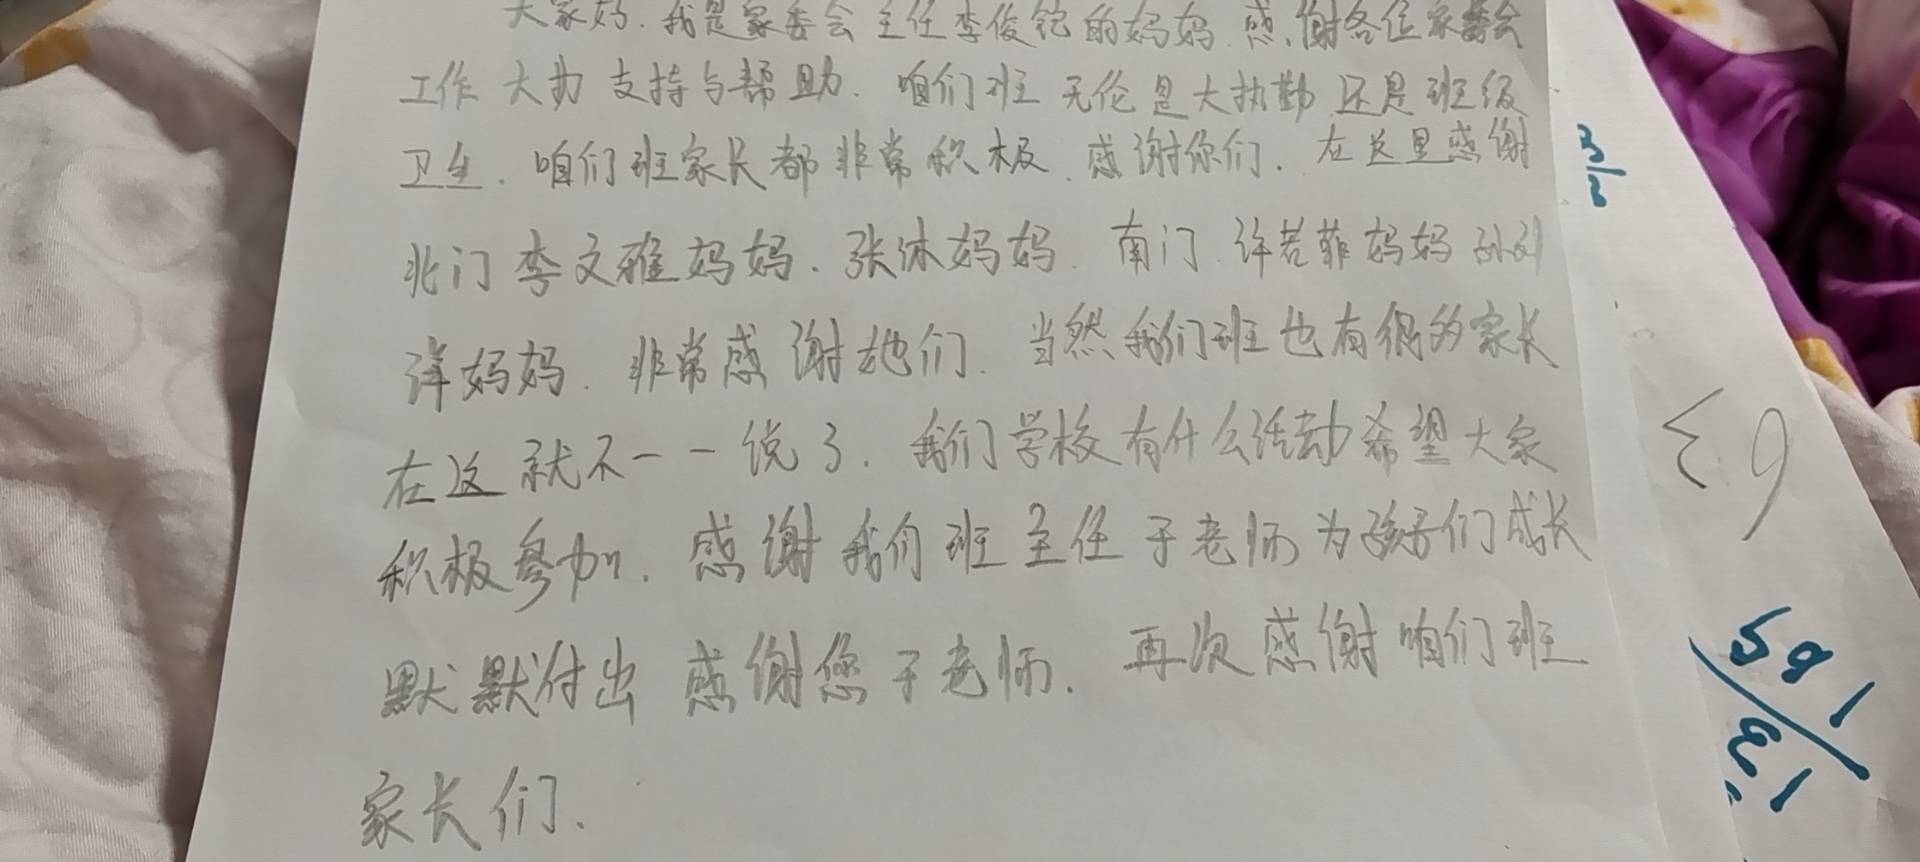 大家好.我是家委会主任李俊铭的妈妈.感谢各位家委会
工作 大力 支持与帮助.咱们班 无伦是大执勤 还是班级
卫生.咱们班家长都非常积极.感谢你们.在这里感谢
北门 李文雅妈妈.张沐妈妈.南门.许若菲妈妈
洋妈妈.非常感谢她们.当然我们班也有很多家长
在这就不一一说了.我们学校有什么活动希望大家
积极参加.感谢我们班主任于老师为孩子们成长
默默付出 感谢您于老师.再次感谢咱们班
家长们.